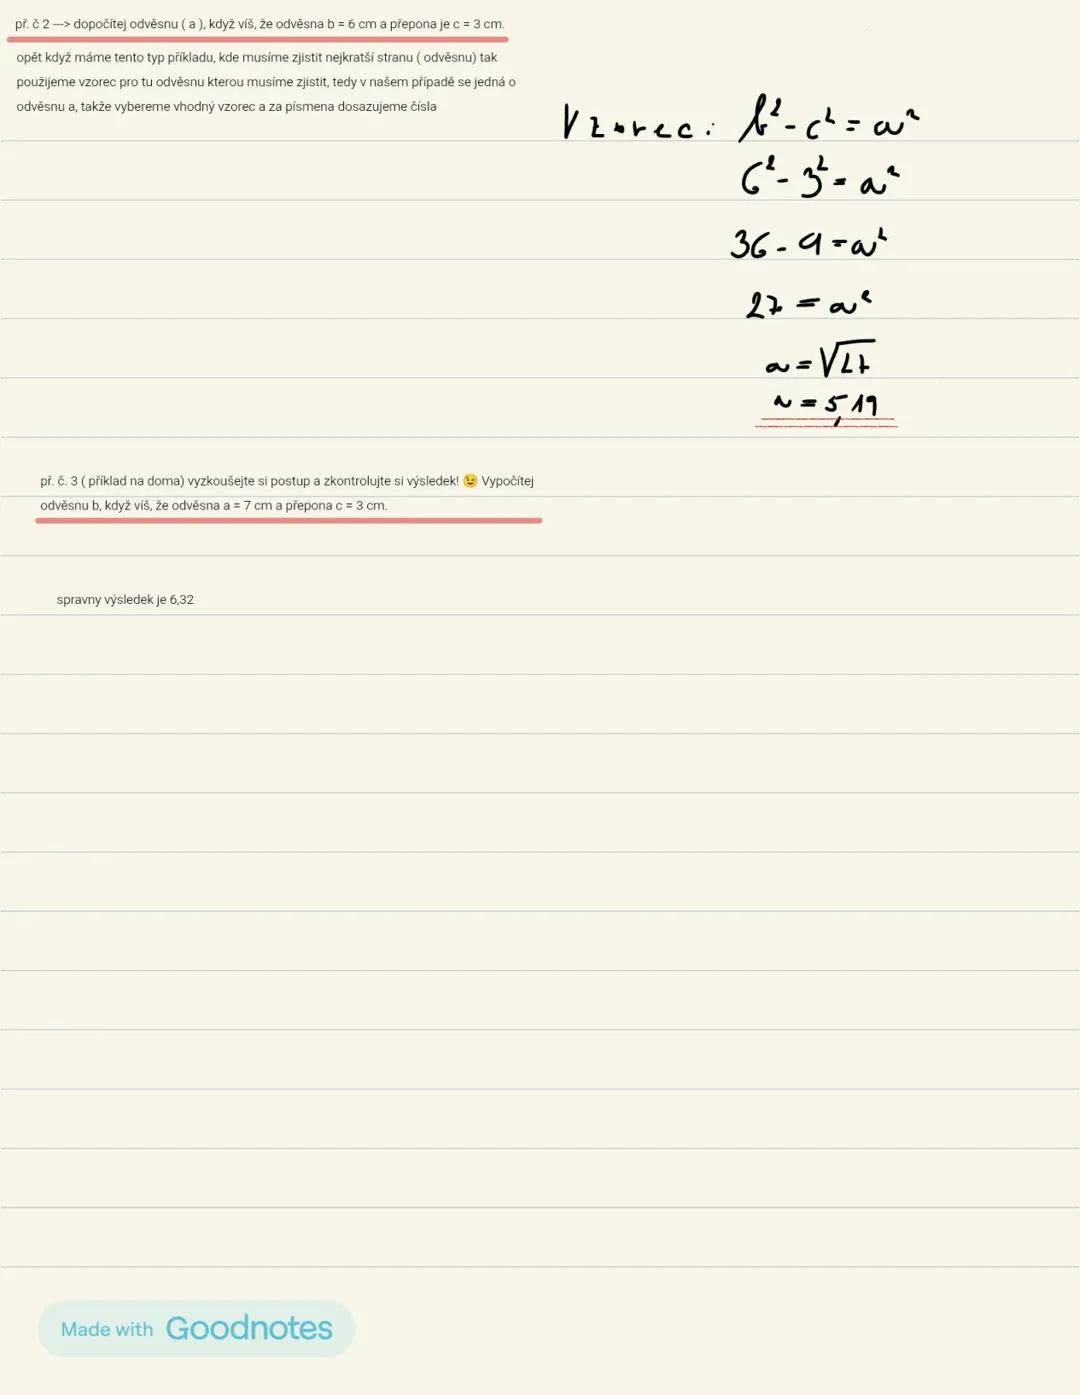 př. č 2 ---> dopočítej odvěsnu ( a ), když víš, že odvěsna b = 6 cm a přepona je c = 3 cm.
opět když máme tento typ příkladu, kde musíme zjistit nejkratší stranu ( odvěsnu) tak
použijeme vzorec pro tu odvěsnu kterou musíme zjistit, tedy v našem případě se jedná o
odvěsnu a, takže vybereme vhodný vzorec a za písmena dosazujeme čísla
Vzorec: b² - c² = a²
6² - 3² = a²
36 - 9 = a²
27 = a²
a = √27
a = 5,19
př. č. 3 ( příklad na doma) vyzkoušejte si postup a zkontrolujte si výsledek! 😉 Vypočítej
odvěsnu b, když víš, že odvěsna a = 7 cm a přepona c = 3 cm.
spravny výsledek je 6,32
Made with Goodnotes